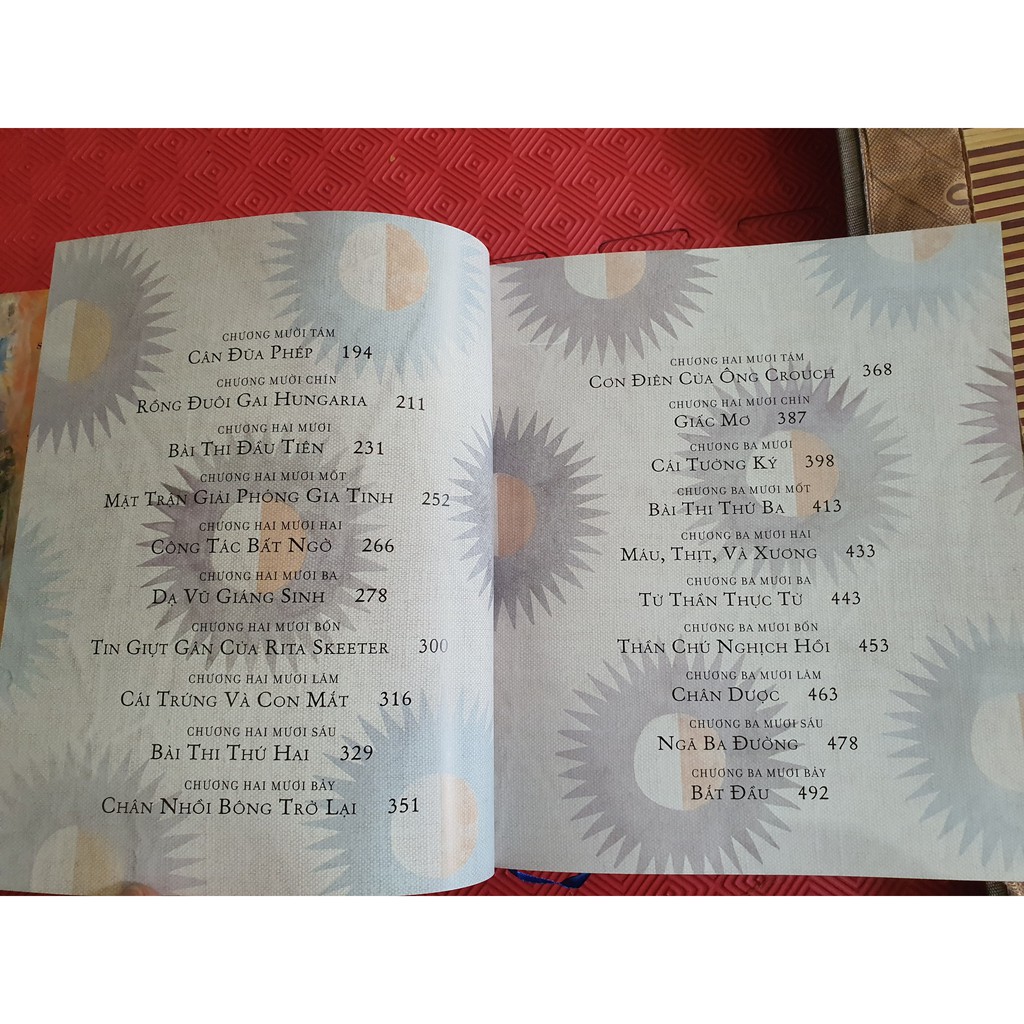 CHƯƠNG MƯỜI TÁM
CÂN ĐŨA PHÉP 194
CHƯƠNG MƯỜI CHÍN
RỒNG ĐUÔI GAI HUNGARIA 211
CHƯƠNG HAI MƯƠI
BÀI THI ĐẦU TIÊN 231
CHƯƠNG HAI MƯƠI MỐT
MẶT TRẬN GIẢI PHÓNG GIA TINH 252
CHƯƠNG HAI MƯƠI HAI
CÔNG TÁC BẤT NGỜ 266
CHƯƠNG HAI MƯƠI BA
DẠ VŨ GIÁNG SINH 278
CHƯƠNG HAI MƯƠI BỐN
TIN GIỰT GÂN CỦA RITA SKEETER 300
CHƯƠNG HAI MƯƠI LĂM
CÁI TRỨNG VÀ CON MẮT 316
CHƯƠNG HAI MƯƠI SÁU
BÀI THI THỨ HAI 329
CHƯƠNG HAI MƯƠI BẢY
CHÂN NHỒI BÔNG TRỞ LẠI 351
CHƯƠNG HAI MƯƠI TÁM
CƠN ĐIÊN CỦA ÔNG CROUCH 368
CHƯƠNG HAI MƯƠI CHÍN
GIẤC MƠ 387
CHƯƠNG BA MƯƠI
CÁI TƯỞNG KÝ 398
CHƯƠNG BA MƯƠI MỐT
BÀI THI THỨ BA 413
CHƯƠNG BA MƯƠI HAI
MÁU, THỊT, VÀ XƯƠNG 433
CHƯƠNG BA MƯƠI BA
TỬ THẦN THỰC TỬ 443
CHƯƠNG BA MƯƠI BỐN
THẦN CHÚ NGHỊCH HỒI 453
CHƯƠNG BA MƯƠI LĂM
CHÂN DƯỢC 463
CHƯƠNG BA MƯƠI SÁU
NGÃ BA ĐƯỜNG 478
CHƯƠNG BA MƯƠI BẢY
BẮT ĐẦU 492